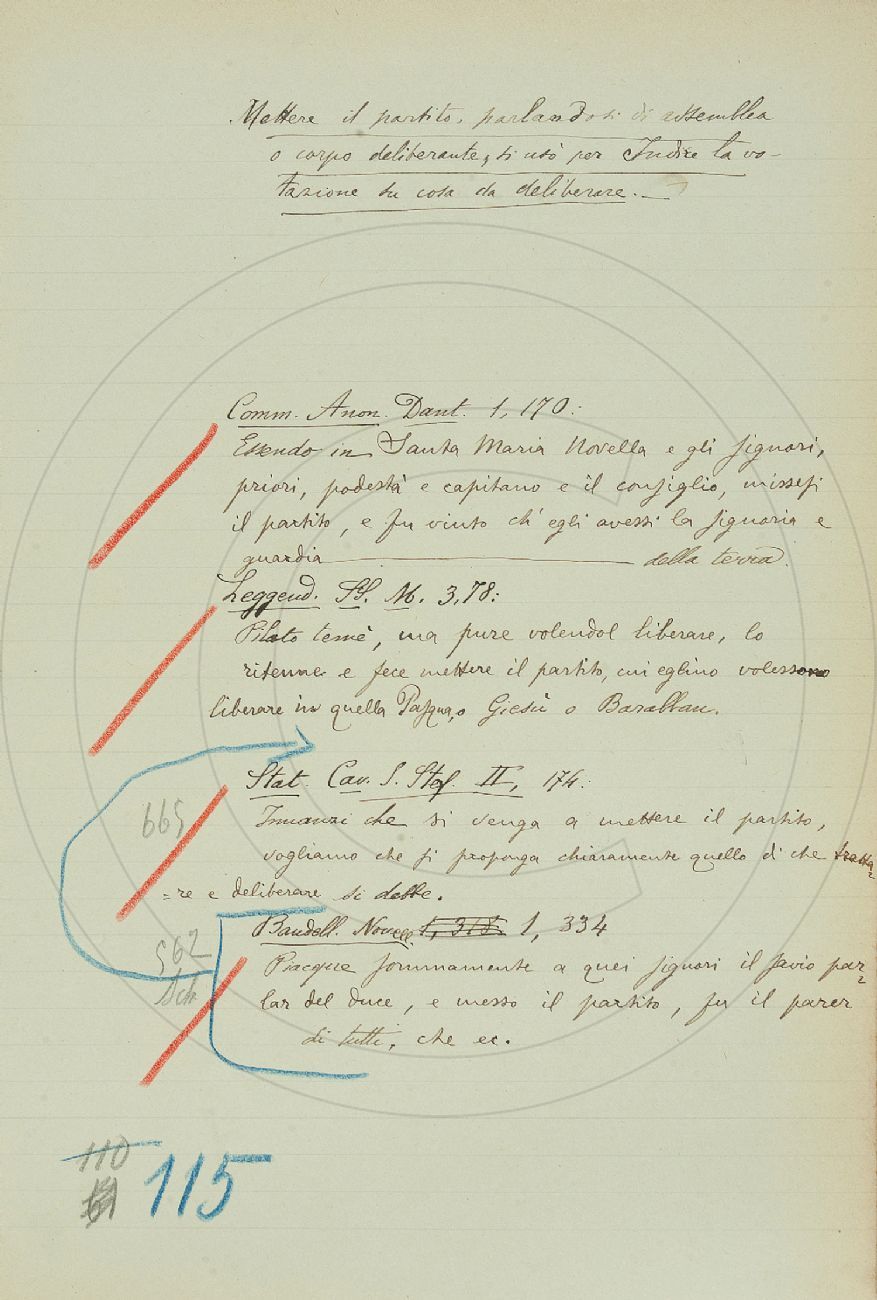 Mettere il partito, parlandosi di assemblea
o corpo deliberante, si usò per Indire la vo-
tazione su cosa da deliberare. —
Comm. Anon. Dant. 1, 170:
Essendo in Santa Maria Novella e gli signori,
priori, podestà e capitano e il consiglio, missesi
il partito, e fu vinto ch'egli avessi la signoria e
guardia — della terra.
Leggend. SS. M. 3, 78:
Pilato temè, ma pure volendol liberare, lo
ritenne e fece mettere il partito, cui eglino volessono
liberare in quella Pasqua, o Giesù o Baraban.
Stat. Cav. S. Stef. II, 174:
665
Innanzi che si venga a mettere il partito,
vogliamo che si proponga chiaramente quello di che tratta=
=re e deliberare si debbe.
Bandell. Novell. 1, 318. 1, 334
562
Piacque sommamente a quei signori il savio par=
lar del duce, e messo il partito, fu il parer
di tutti, che ec.
110
115